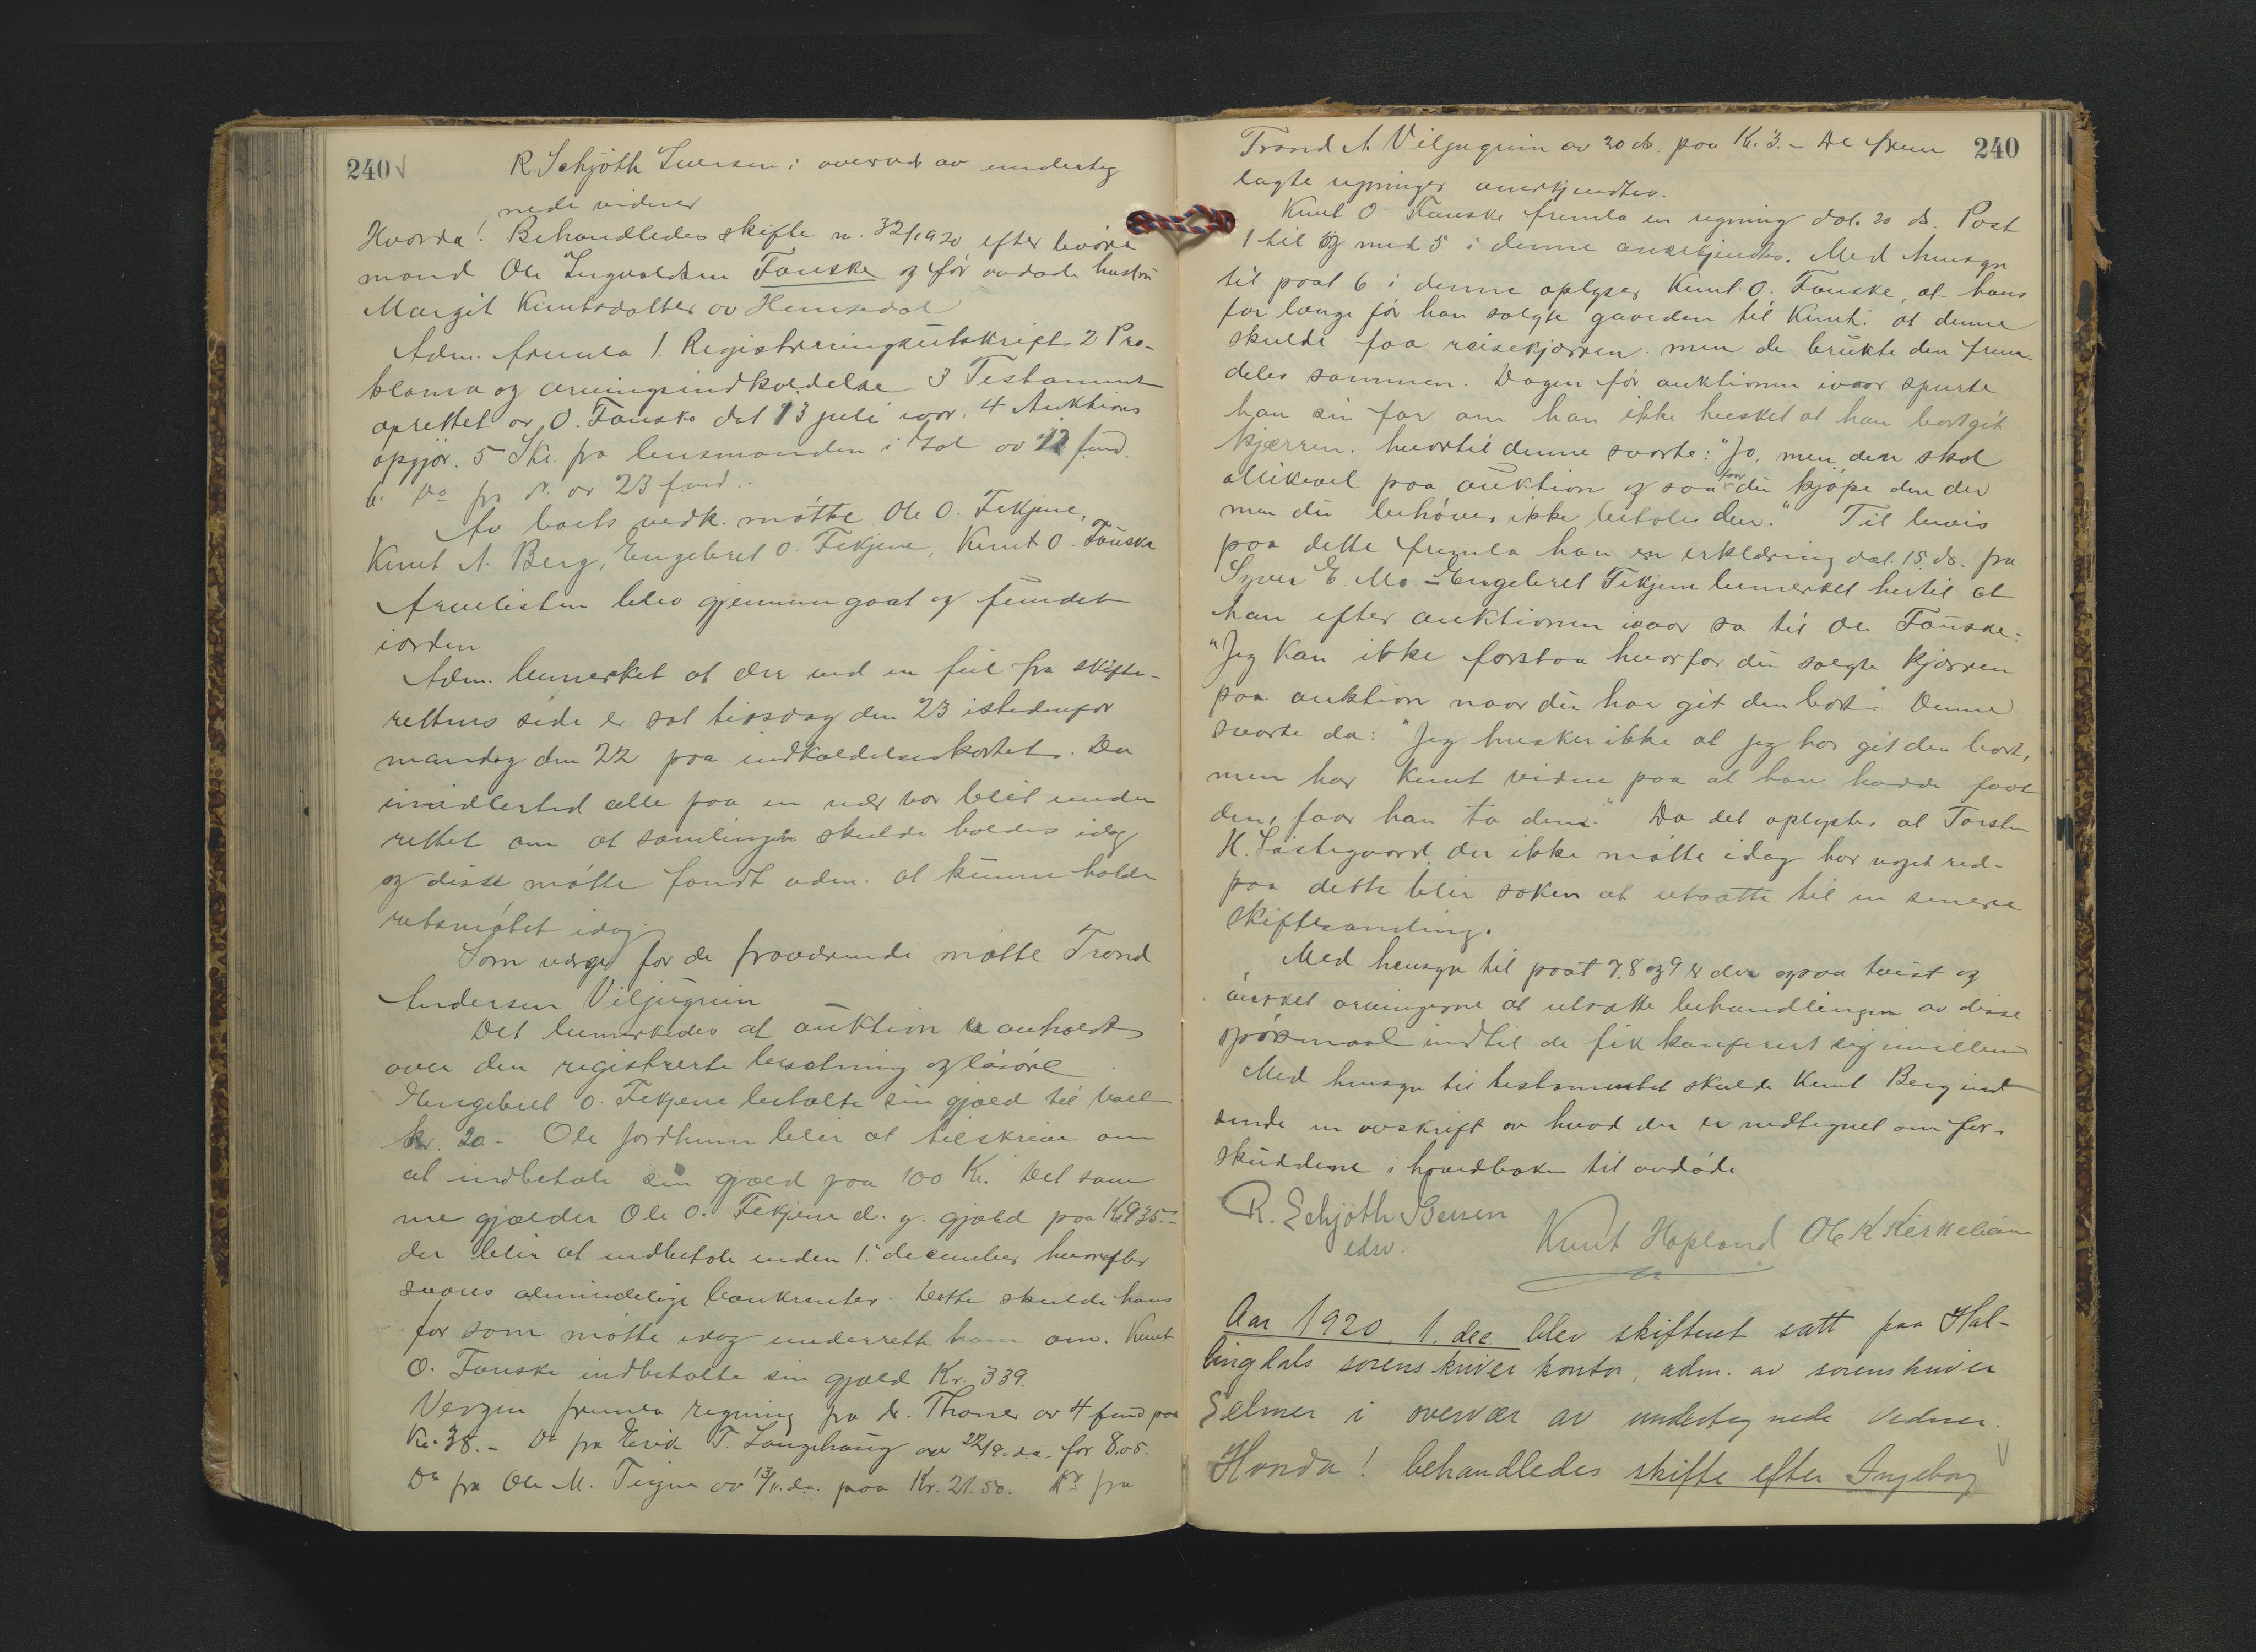 240
R. Schjöth Iversen i overvær av underteg
nede vidner
Hvorda! Behandledes skifte nr. 32/1920 efter
mand Ole Ingvaldsen Fauske og før avdøde hustru
Margit Knutsdatter av Hemsedal
Adm. fremla 1. Registreringsutskrift 2 Pro-
klama og arvingsindkaldelse 3 Testament
oprettet av O. Fauske dat 13 juli iaar. 4 Auktions
opgjør. 5 Skr. fra lensmanden i Gol av 12 f.md.
6. Do fra do. av 23 f.md.
Av boets vedk. møtte Ole O. Fekjene,
Knut A. Berg, Engebret O. Fekjene, Knut O. Fauske
Arvelisten blev gjennemgaat og fundet
iorden
Adm. bemerket at der ved en feil fra skifte-
rettens side er sat tirsdag den 23 istedenfor
mandag den 22 paa indkaldelseskortet. Da
imidlertid alle paa en nær var blit under
rettet om at samlingen skulde holdes idag
og disse møtte fandt adm. at kunne holde
retsmøtet idag.
Som verge for de fraværende møtte Trond
Andersen Viljugrein
Det bemerkedes at auktion er avholdt
over den registrerte besætning og løsøre
Engebret O. Fekjene betalte sin gjæld til boet
kr. 20.- Ole Jordheim blir at tilskrive om
at indbetale sin gjæld paa 100 Kr. Det sam
me gjælder Ole O. Fekjene d. y. gjæld paa Kr 935.-
der blir at indbetale inden 1. december hvorefter
svares almindelige bankrenter. Dette skulde hans
far som møtte idag underrette ham om. Knut
O. Fauske indbetalte sin gjæld Kr. 339.
Vergen fremla regning fra dr. Thoner av 4 f.md paa
Kr. 38.- Do fra Erik T. Langehaug av 22/9. d.a. for 8.05.
Do fra Ole M. av 13/11. d.a. paa Kr. 21.50. Do fra
240
Trond A Viljugrein av 20 ds. paa Kr. 3.- De frem
lagte regninger anerkjendtes.
Knut O. Fauske fremla en regning dat. 20 ds. Post
1 til og med 5 i denne anerkjendtes. Med hensyn
til post 6 i denne oplyser Knut O. Fauske, at hans
far længe før han solgte gaarden til Knut at denne
skulde faa reisekjærren men de brukte den frem-
deles sammen. Dagen før auktionen ivaar spurte
han sin far om han ikke husket at han bortgit
kjærren. hvortil denne svarte: "Jo, men den skal
allikevel paa auktion og saa faar du kjøpe den der
men du behøver ikke betale den." Til bevis
paa dette fremla han en erklæring dat. 15. ds. fra
Syver E. Mo. - Engebret Fekjene bemerket hertil at
han efter auktionen ivaar sa til Ole Fauske:
"Jeg kan ikke forstaa hvorfor du solgte kjærren
paa auktion naar du har git den bort". Denne
svarte da: "Jeg husker ikke at jeg har git den bort,
men har Knut vidne paa at han hadde faat
den, faar han ta den." Da det oplystes at Torsten
H. der ikke møtte idag har noget rede
paa dette blir saken at utsætte til en senere
skiftesamling.
Med hensyn til post 7, 8 og 9 er der ogsaa tvist og
ønsket arvingerne at utsætte behandlingen av disse
spørsmaal indtil de fik konferert sig imellem
Med hensyn til testamentet skulde Knut Berg ind
sende en avskrift av hvad der er nedtegnet om for-
skuddene i hovedboken til avdøde
R. Schjöth Iversen
edsv.
Knut Hopland Ole K Kirkebøen
Aar 1920, 1. dec. blev skifteret satt paa Hal-
lingdals sorenskriver kontor, adm. av sorenskriver
Selmer i overvær av undertegnede vidner.
Hvorda! behandledes skifte efter Ingeborg